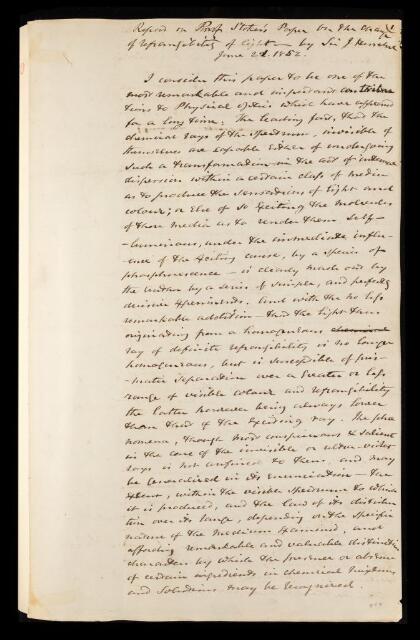 Report on Prof.r Stokes's Paper "On the change
of refrangibility of light — by Sir J. Herschel
June 21. 1852.
I consider this paper to be one of the
most remarkable and important contribu-
tions to Physical Optics which have appeared
for a long time. The leading fact, that the
chemical rays of the spectrum, invisible of
themselves are capable either of undergoing
such a transformation in the act of internal
dispersion within a certain class of media
as to produce the sensations of light and
colour; or else of so exciting the molecules
of those media as to render them self-
luminous, under the immediate influ-
-ence of the exciting cause, by a species of
phosphorescence — is clearly made out by
the author by a series of simple, and perfectly
decisive experiments. And with the no less
remarkable addition — that the light thus
originating from a homogeneous chemical
ray of definite refrangibility is no longer
homogeneous, but is susceptible of pris-
-matic separation over a greater or less
range of visible colour and refrangibility
the latter however being always lower
than that of the exciting ray. The phe
nomena, though most conspicuous & salient
in the case of the invisible or ultra-violet
rays is not confined to them, and may
be generalized in its enunciation — the
extent, within the visible spectrum to which
it is produced, and the law of its distribu
tion over its range, depending on the specific
nature of the medium examined, and
affording remarkable and valuable distinctive
characters by which the presence or absence
of certain ingredients in chemical mixtures
and solutions may be recognized.